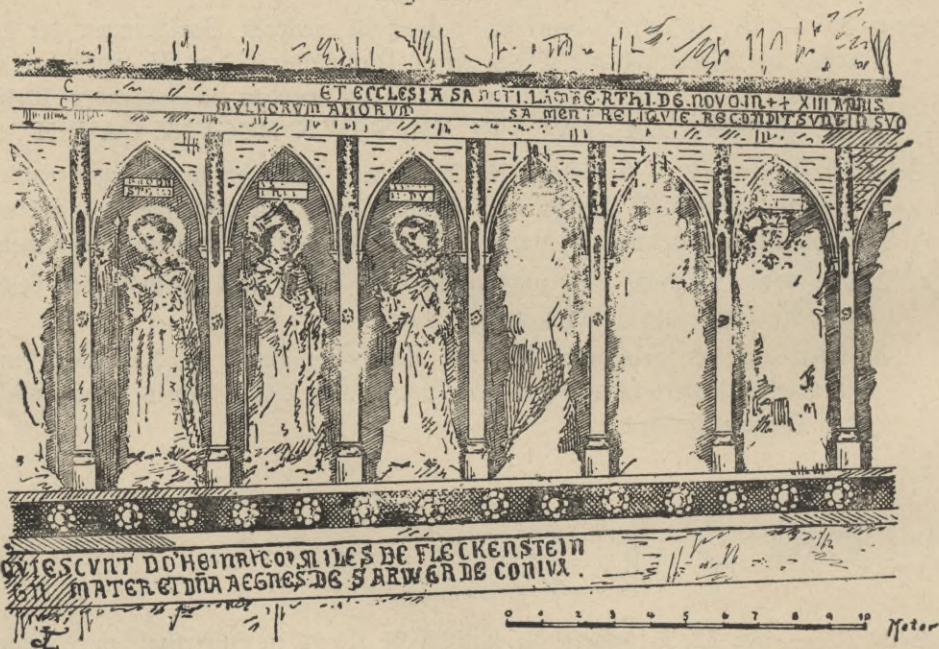 C ET ECCLESIA SANCTI. LAMBERTHI. DE. NOVO. IN ++ XIII ANNIS
MVLTORVM ALIORVM SA MENT RELIQVIE. RECONDIT SVNT IN SVO
QVIESCVNT DO' HEINRICO MILES DE FLECKENSTEIN
MATER ET DNA AEGNES DE SARWERDE CONIVX.
0 1 2 3 4 5 6 7 8 9 10 Meter